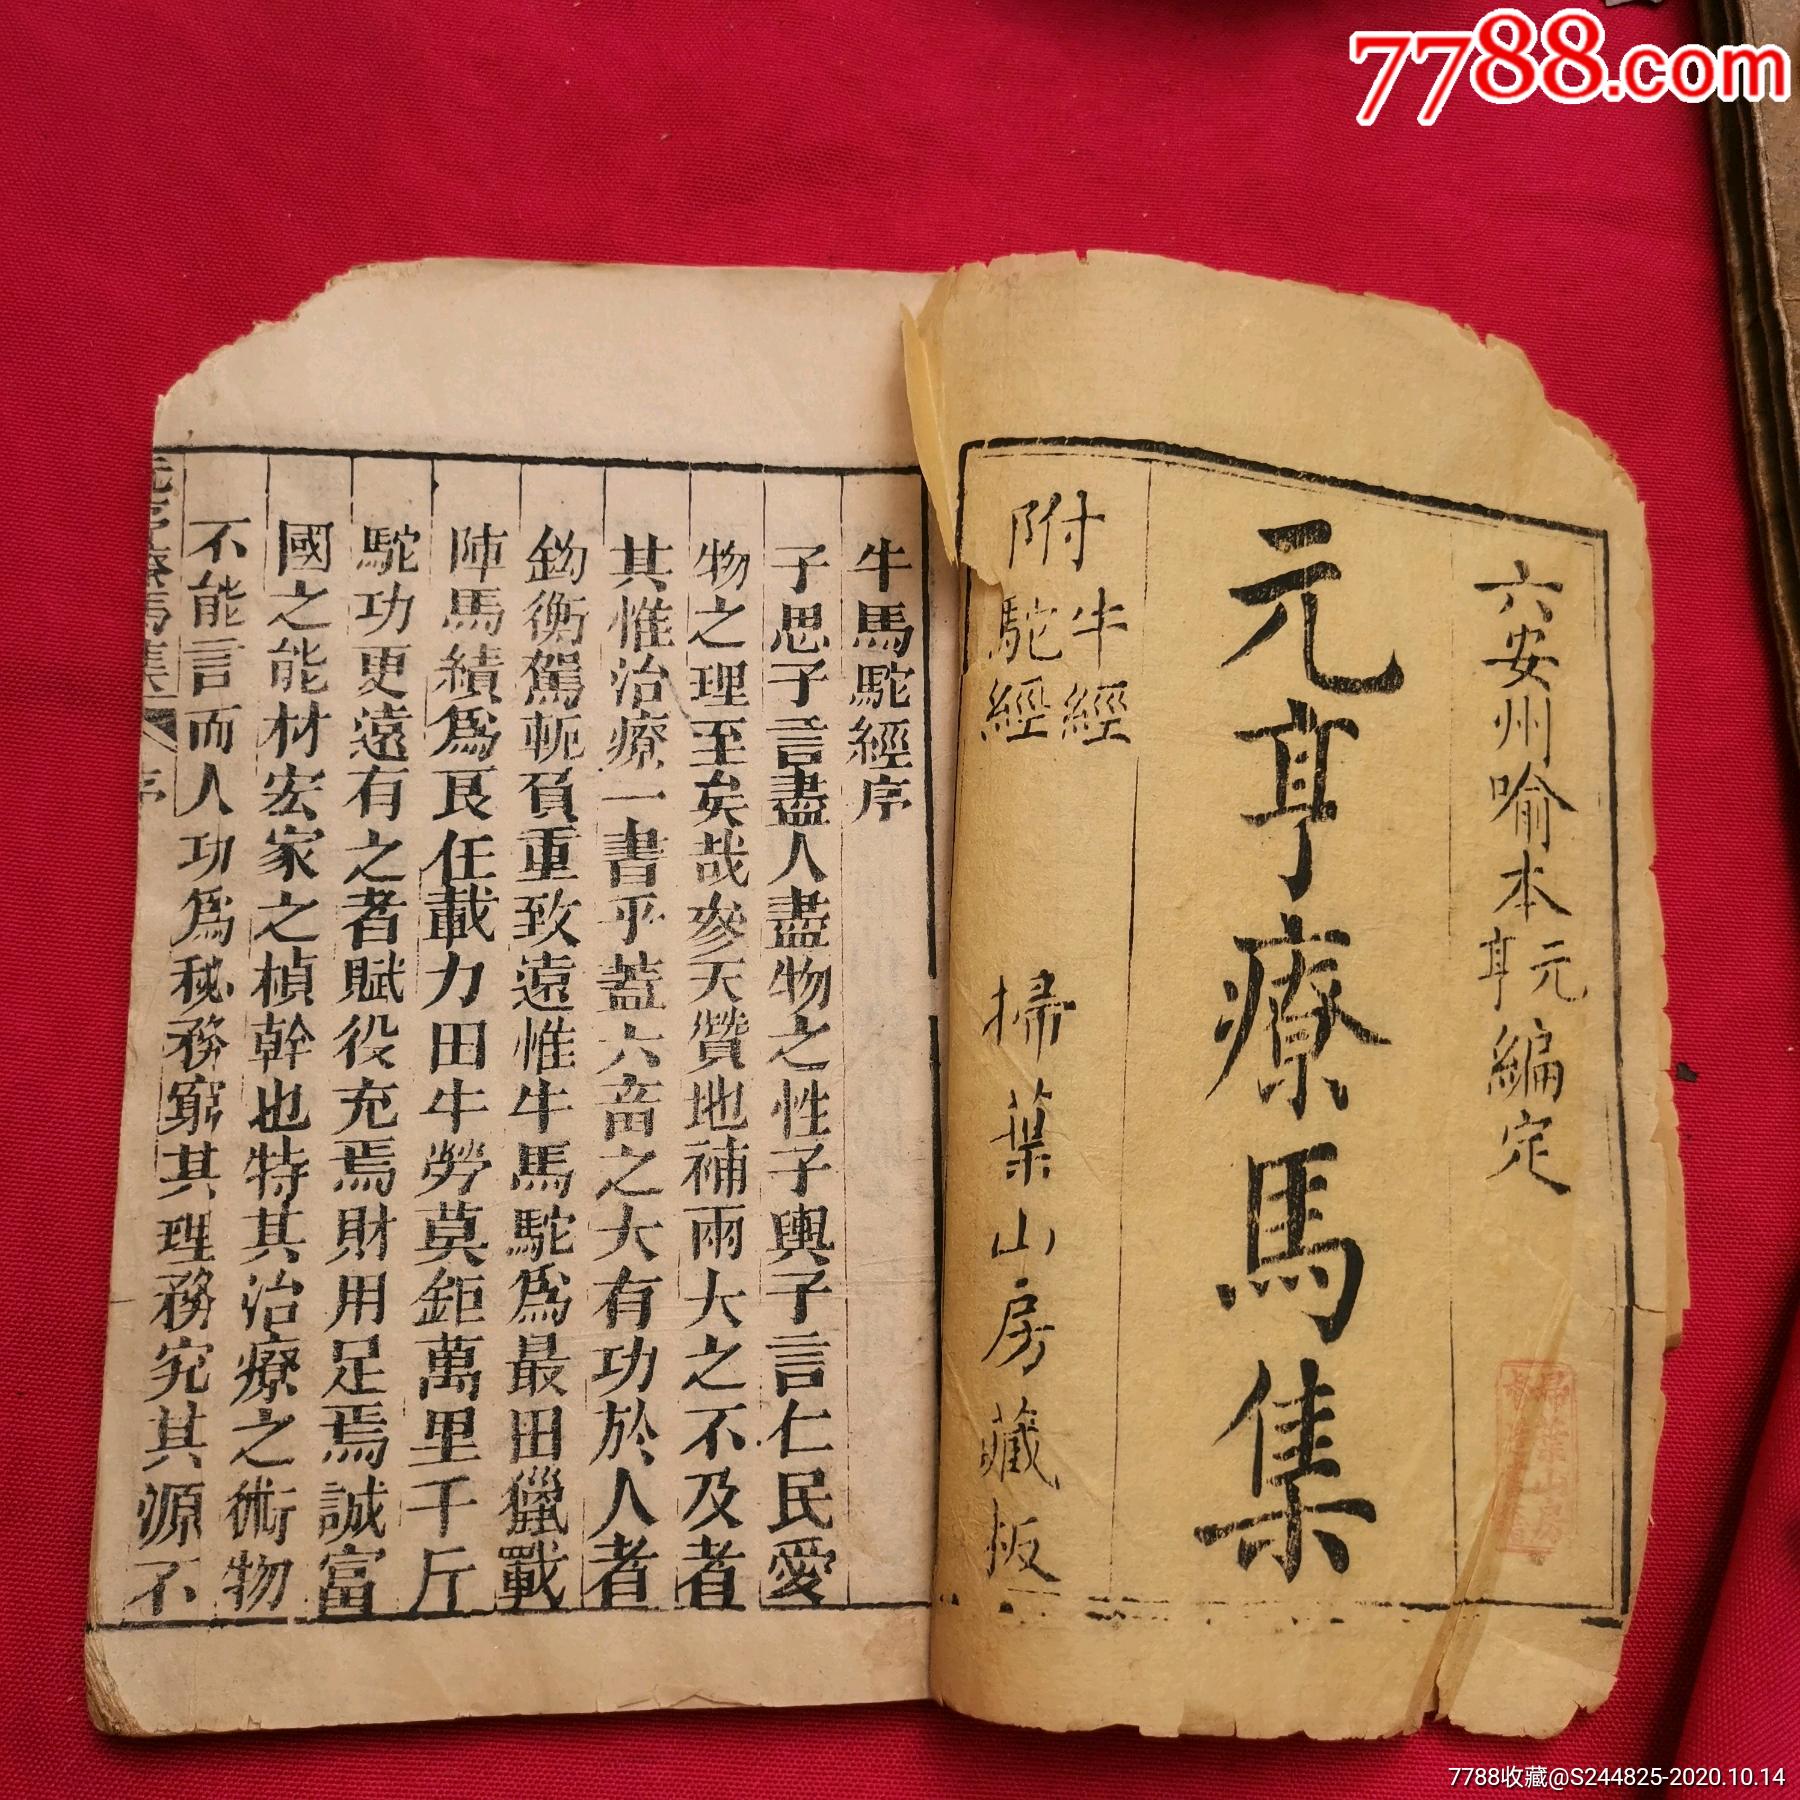 7788.com
六安州喻本元亨編定
元亨療馬集
附牛經駝經 掃葉山房藏板
牛馬駝經序
子思子言盡人盡物之性子輿子言仁民愛
物之理至矣哉參天贊地補兩大之不及者
其惟治療一書乎蓋六畜之大有功於人者
鈎衡駕軛負重致遠惟牛馬駝爲最田獵戰
陣馬績爲良任載力田牛勞莫鉅萬里千斤
駝功更遠有之者賦役充焉財用足焉誠富
國之能材宏家之楨幹也特其治療之術物
不能言而人功爲秘務窮其理務究其源不
序
7788收藏@S244825-2020.10.14